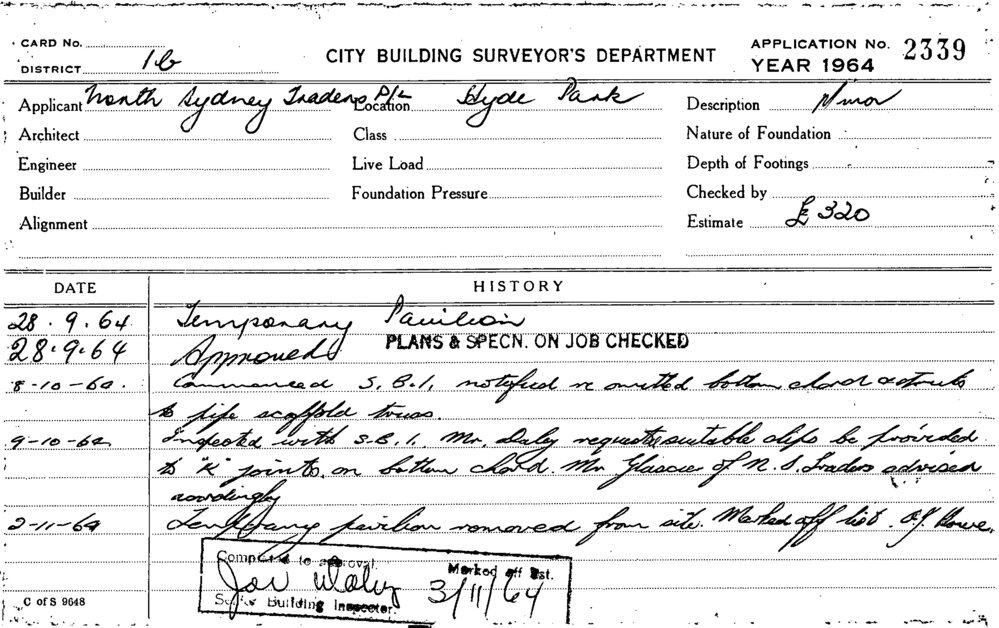 CARD No.
DISTRICT 1b
CITY BUILDING SURVEYOR'S DEPARTMENT
APPLICATION No. 2339
YEAR 1964
Applicant North Sydney Traders P/L Location Hyde Park Description Minor
Architect Class Nature of Foundation
Engineer Live Load Depth of Footings
Builder Foundation Pressure Checked by
Alignment Estimate £320
DATE HISTORY
28.9.64 Temporary Pavilion
28.9.64 Approved PLANS & SPECN. ON JOB CHECKED
8-10-64. Commenced S.B.I. notified re omitted bottom chord & struts
to pipe scaffold truss.
9-10-64. Inspected with S.B.I. Mr. Daley requests suitable clips be provided
to "K" joints on bottom chord. Mr of N.S. Traders advised
accordingly
2-11-64 Temporary pavilion removed from site. Marked off list.
Completed to approval. Marked off list.
3/11/64
Senior Building Inspector.
C of S 9648